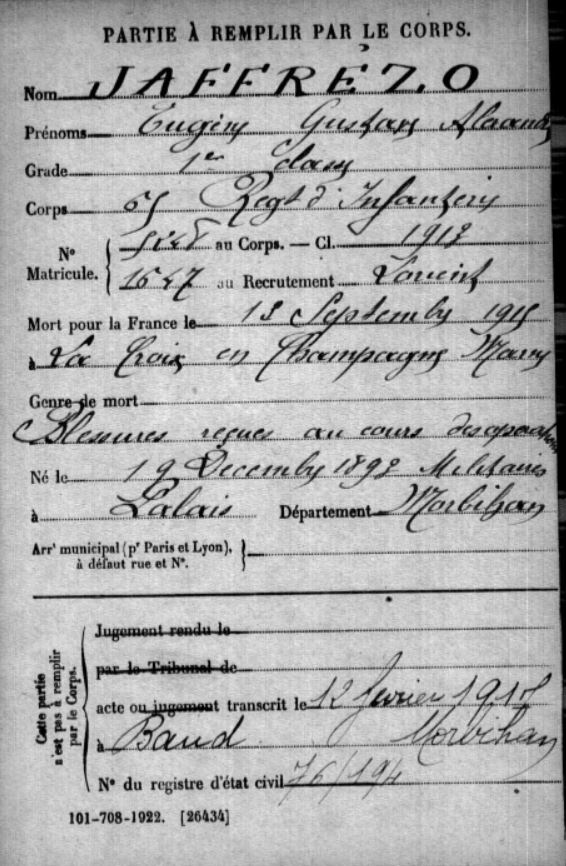 PARTIE À REMPLIR PAR LE CORPS.
Nom JAFFREZO
Prénoms Eugène Gustave
Grade 1er Classe
Corps 65 Regt d'Infanterie
N° Matricule. au Corps. — Cl.
au Recrutement Lorient
Mort pour la France le Septembre 1915
à La Croix en Champagne Marne
Genre de mort
Blessures reçues au cours des opérations
Né le 19 Décembre Militaires
à Palais Département Morbihan
Arrt municipal (pr Paris et Lyon),
à défaut rue et N°.
Cette partie n'est pas à remplir par le Corps.
Jugement rendu le
par le Tribunal de
acte ou jugement transcrit le 12 février
à Baud Morbihan
N° du registre d'état civil 76/194
101-708-1922. [26434]